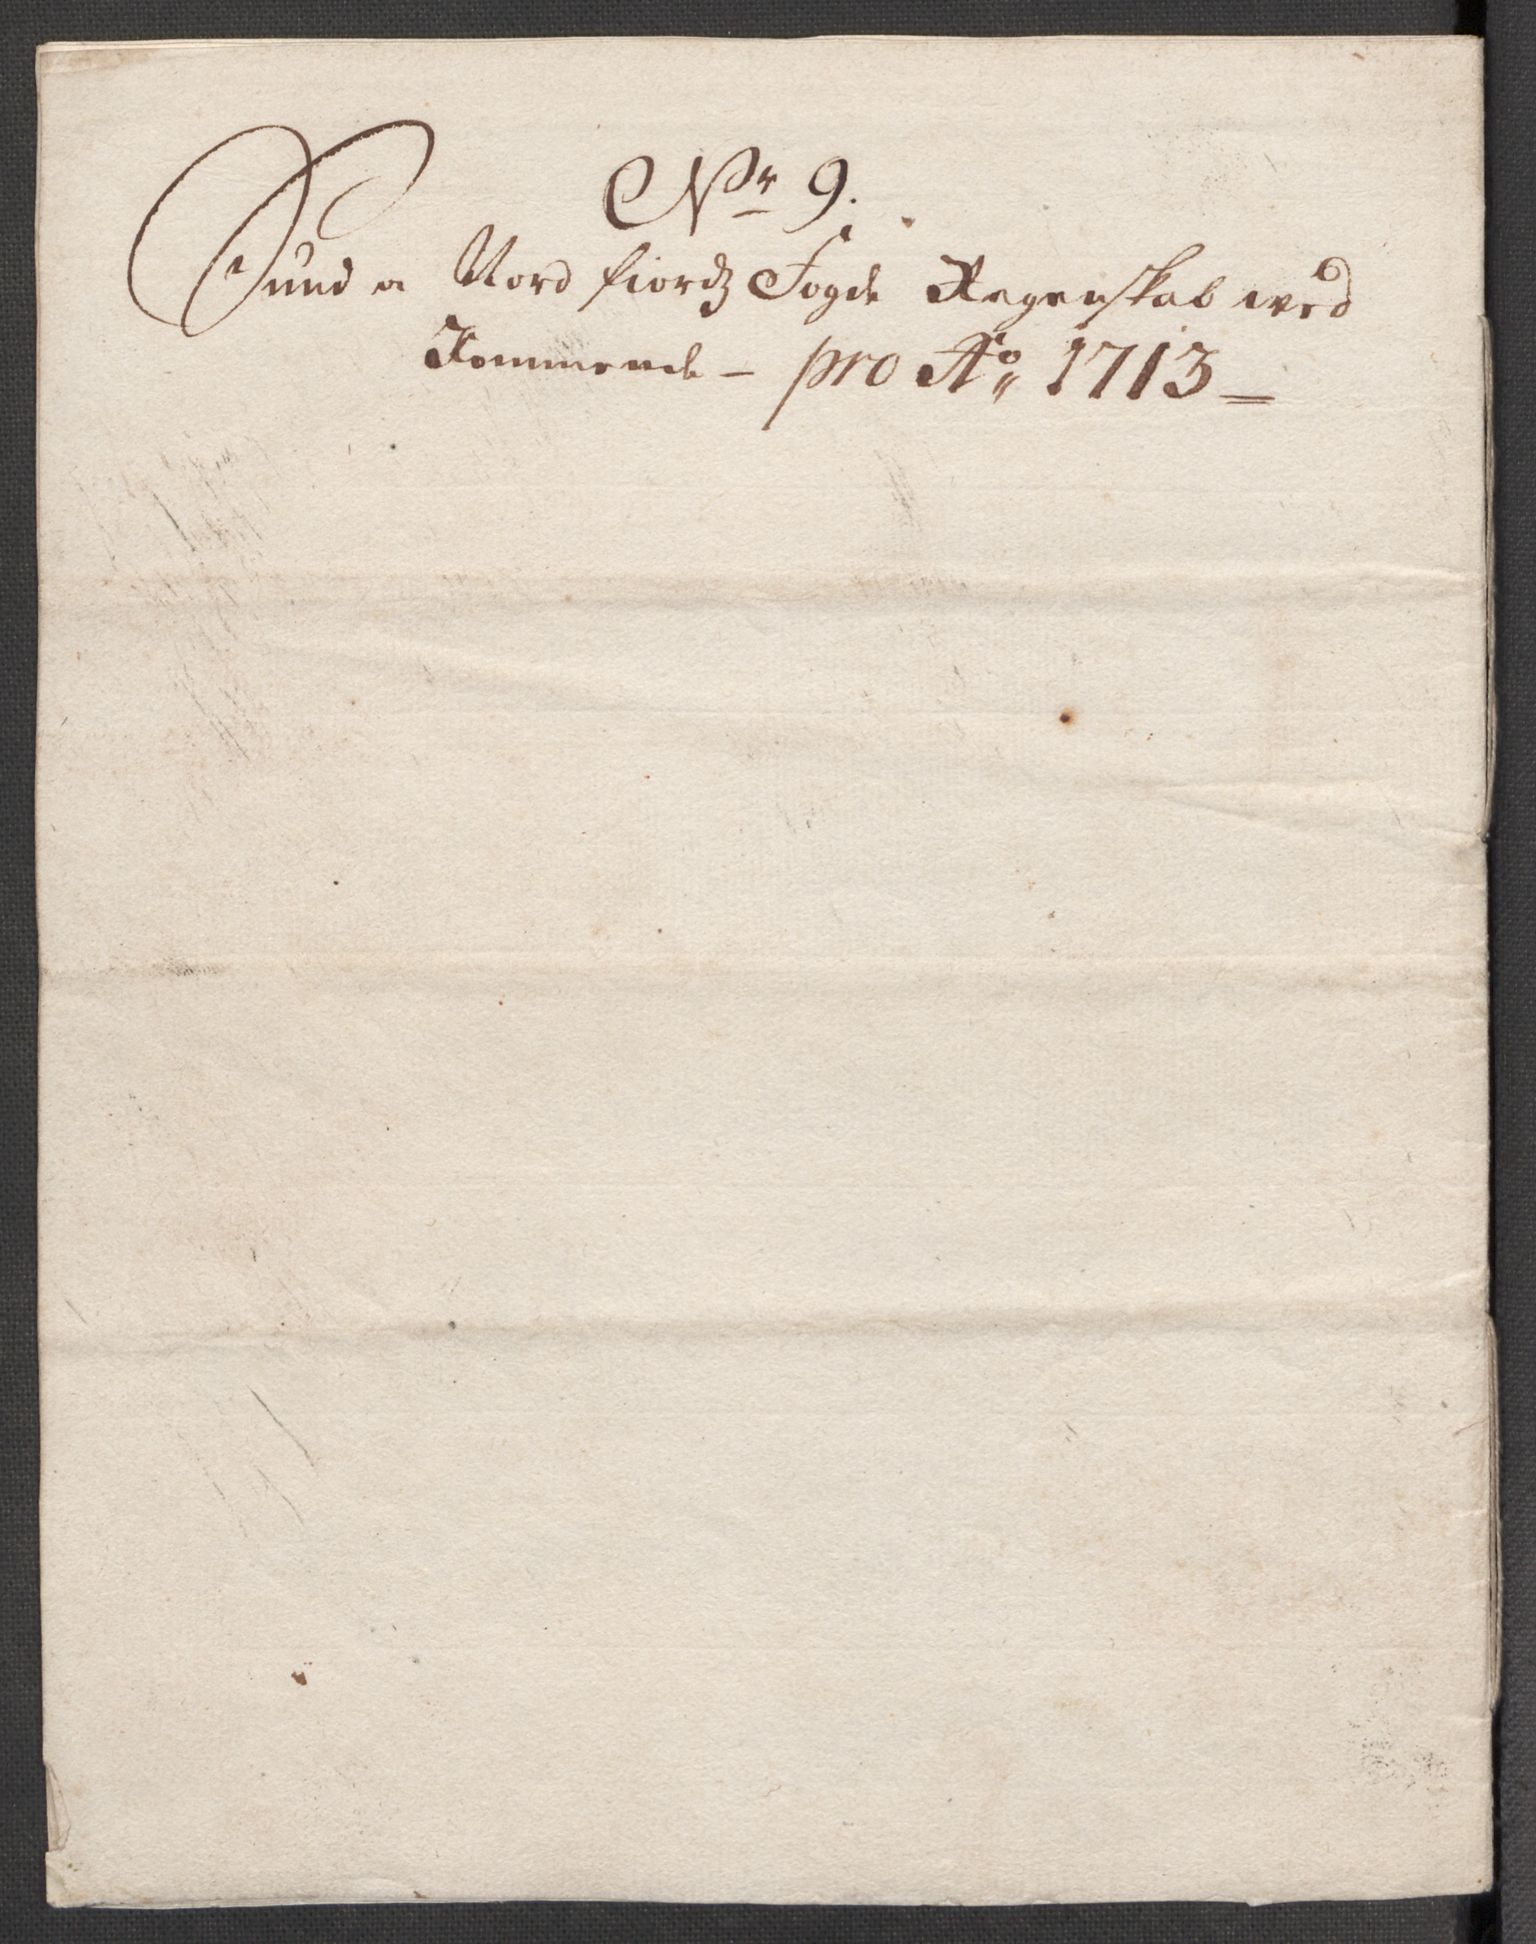 No 9.
Sund og Nordfiordz Fogde Regenskab wed
Kommende – pro Ao 1713 –